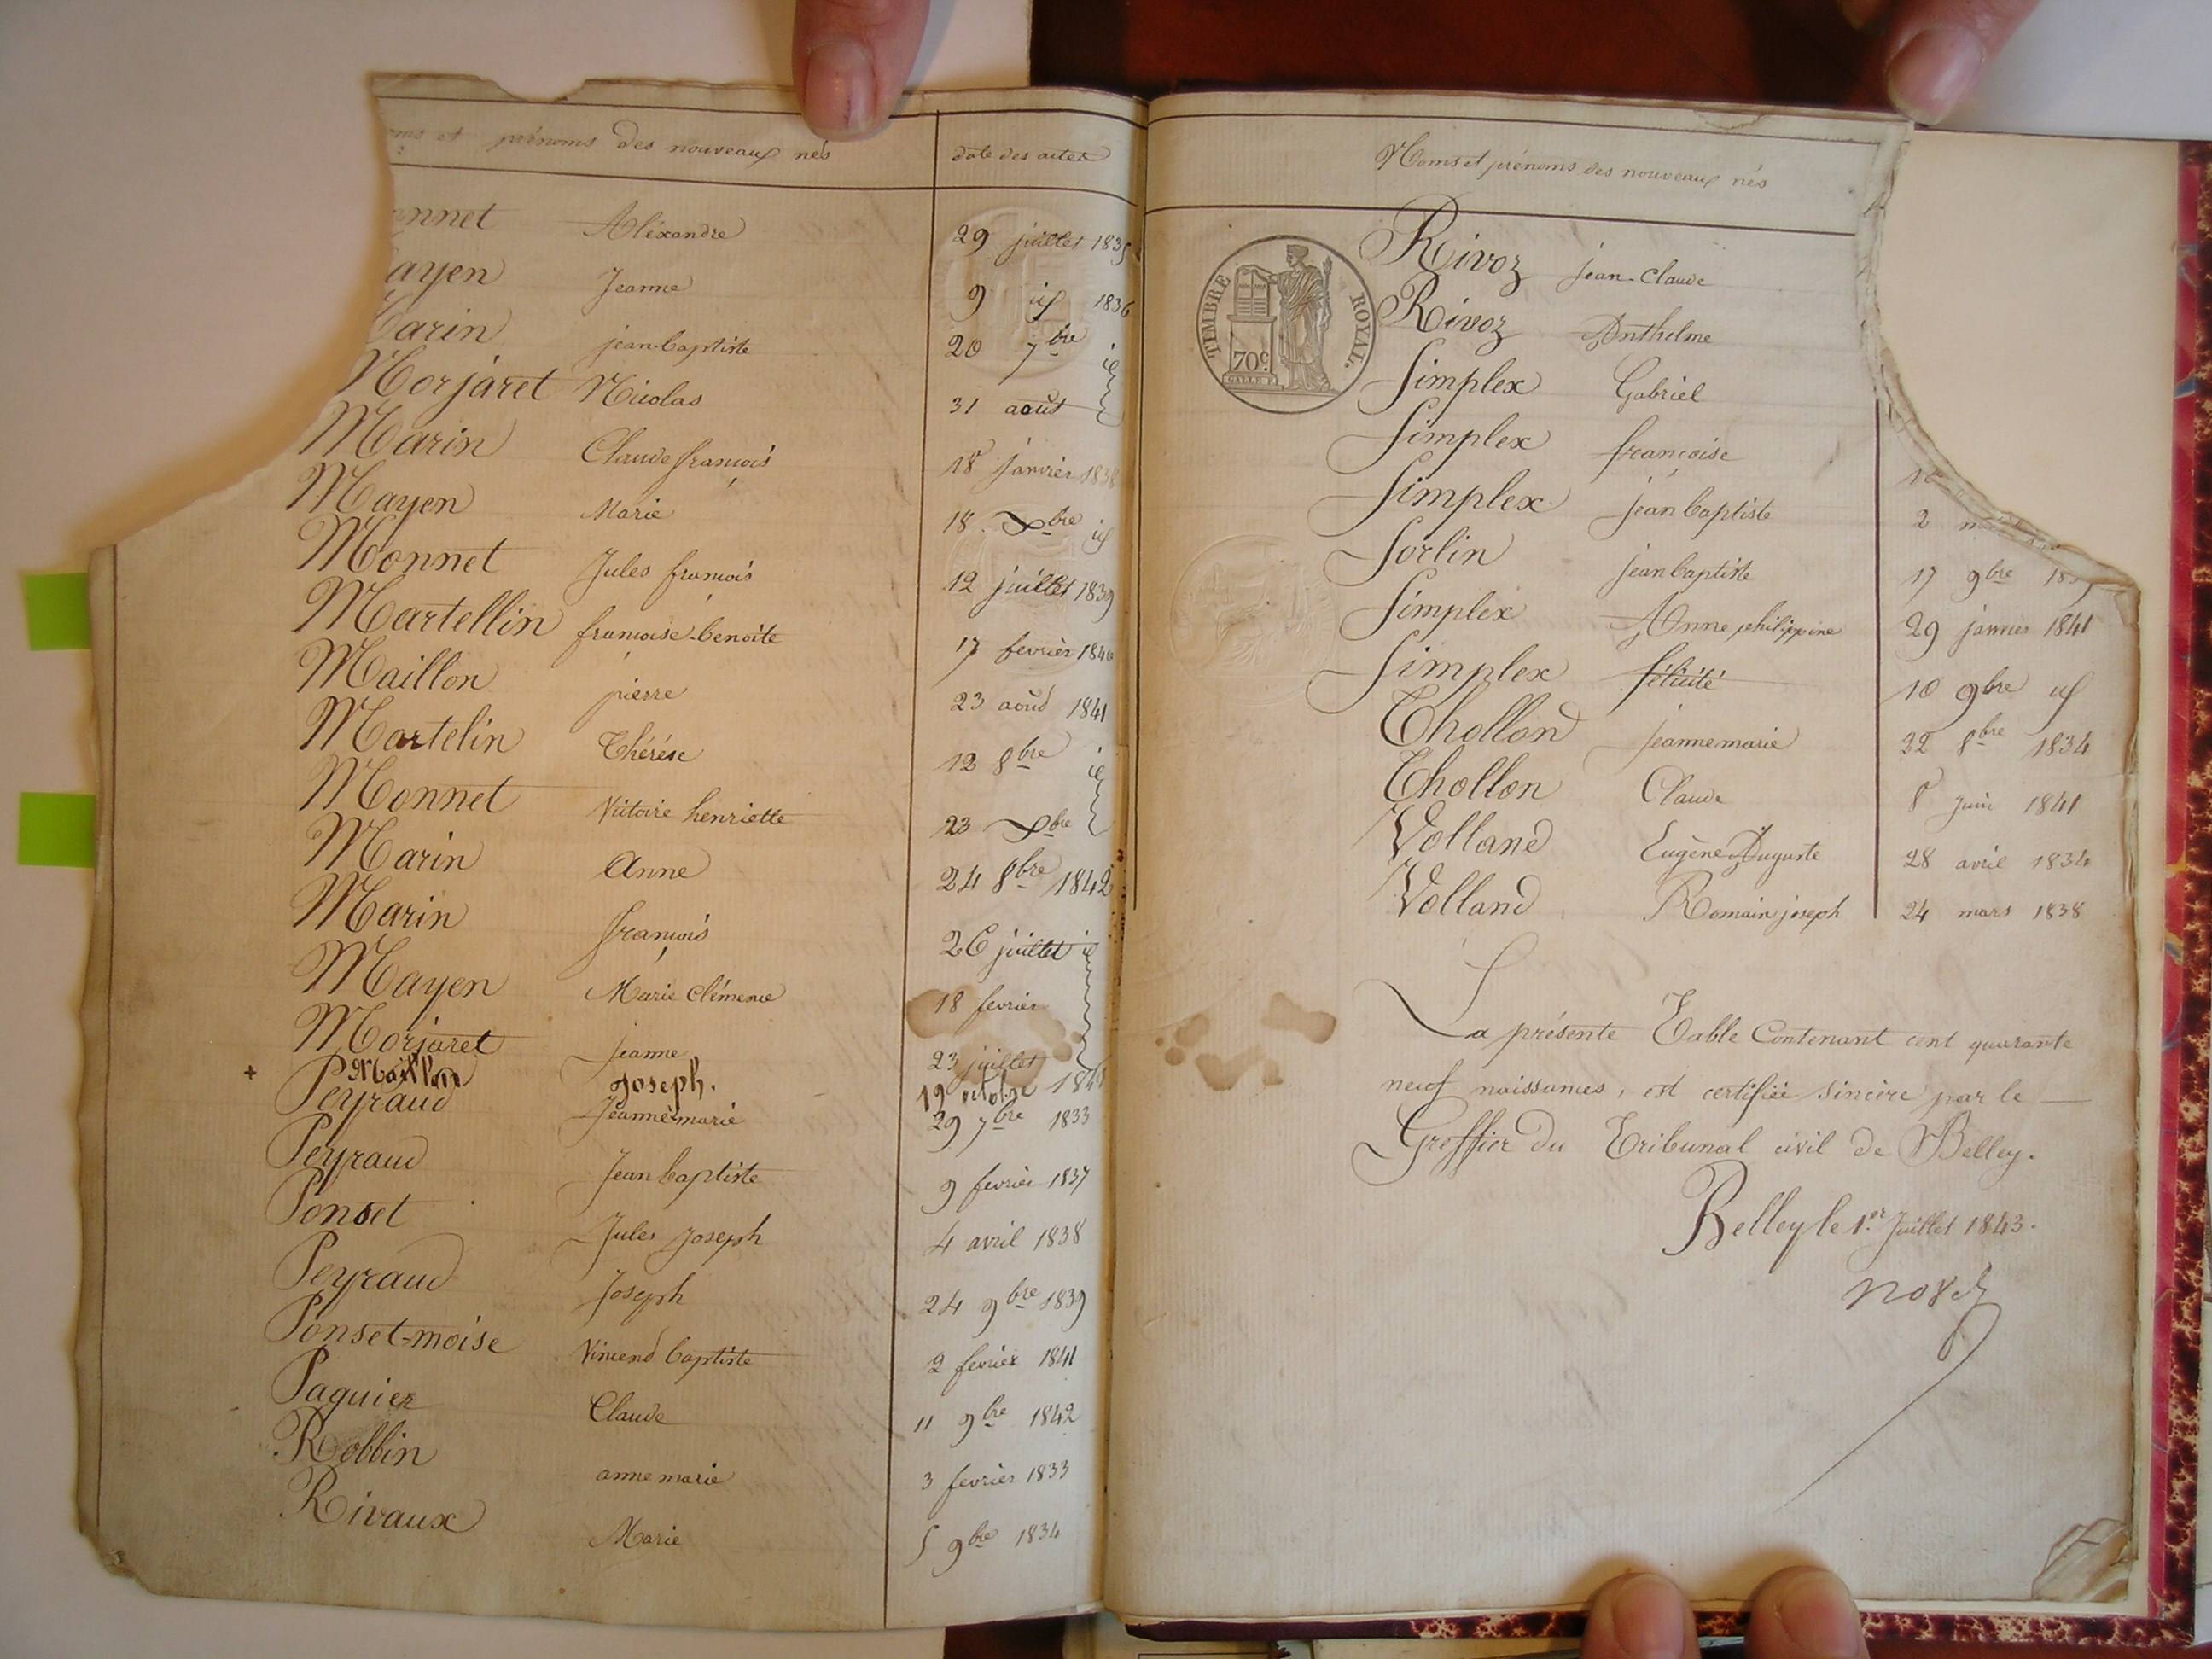 et prénoms des nouveaux nés date des actes
nnet Aléxandre 29 juillet 1835
ayen Jeanne 9 id 1836
arin jean-baptiste 20 7bre id
Morjaret Nicolas 31 août
Marin Claude françois 18 janvier 1838
Mayen Marie 18 Xbre id
Monnet Jules françois 12 juillet 1839
Martellin françoise-benoite 17 fevrier 1840
Maillon pierre 23 aoud 1841
Martelin Thérése 12 8bre id
Monnet Victoire henriette 23 Xbre
Marin Anne 24 8bre 1842
Marin françois 26 juillet id
Mayen Marie Clémence 18 fevrier
Morjaret jeanne 23 juillet
+ Maillon Joseph. 19 octobre
Peyraud Jeanne marie 29 7bre 1833
Peyraud Jean baptiste 9 fevrier 1837
Ponset Jules Joseph 4 avril 1838
Peyraud Joseph 24 9bre 1839
Ponset-moise Vincend baptiste 2 fevrier 1841
Paquier Claude 11 9bre 1842
Robbin anne marie 3 fevrier 1833
Rivaux Marie 5 9bre 1834
Noms et prénoms des nouveaux nés
TIMBRE ROYAL.
70c.
Rivoz jean-Claude
Rivoz Anthelme
Simplex Gabriel
Simplex françoise
Simplex jean baptiste 2
Sorlin jean baptiste 17 9bre
Simplex Anne philippine 29 janvier 1841
Simplex félicité 10 9bre id
Thollond jeanne marie 22 8bre 1834
Thollon Claude 8 juin 1841
Volland Eugène Auguste 28 avril 1834
Volland Romain joseph 24 mars 1838
La présente Table Contenant cent quarante
neuf naissances, est certifiée sincère par le
Greffier du Tribunal civil de Belley.
Belley le 1er Juillet 1843.